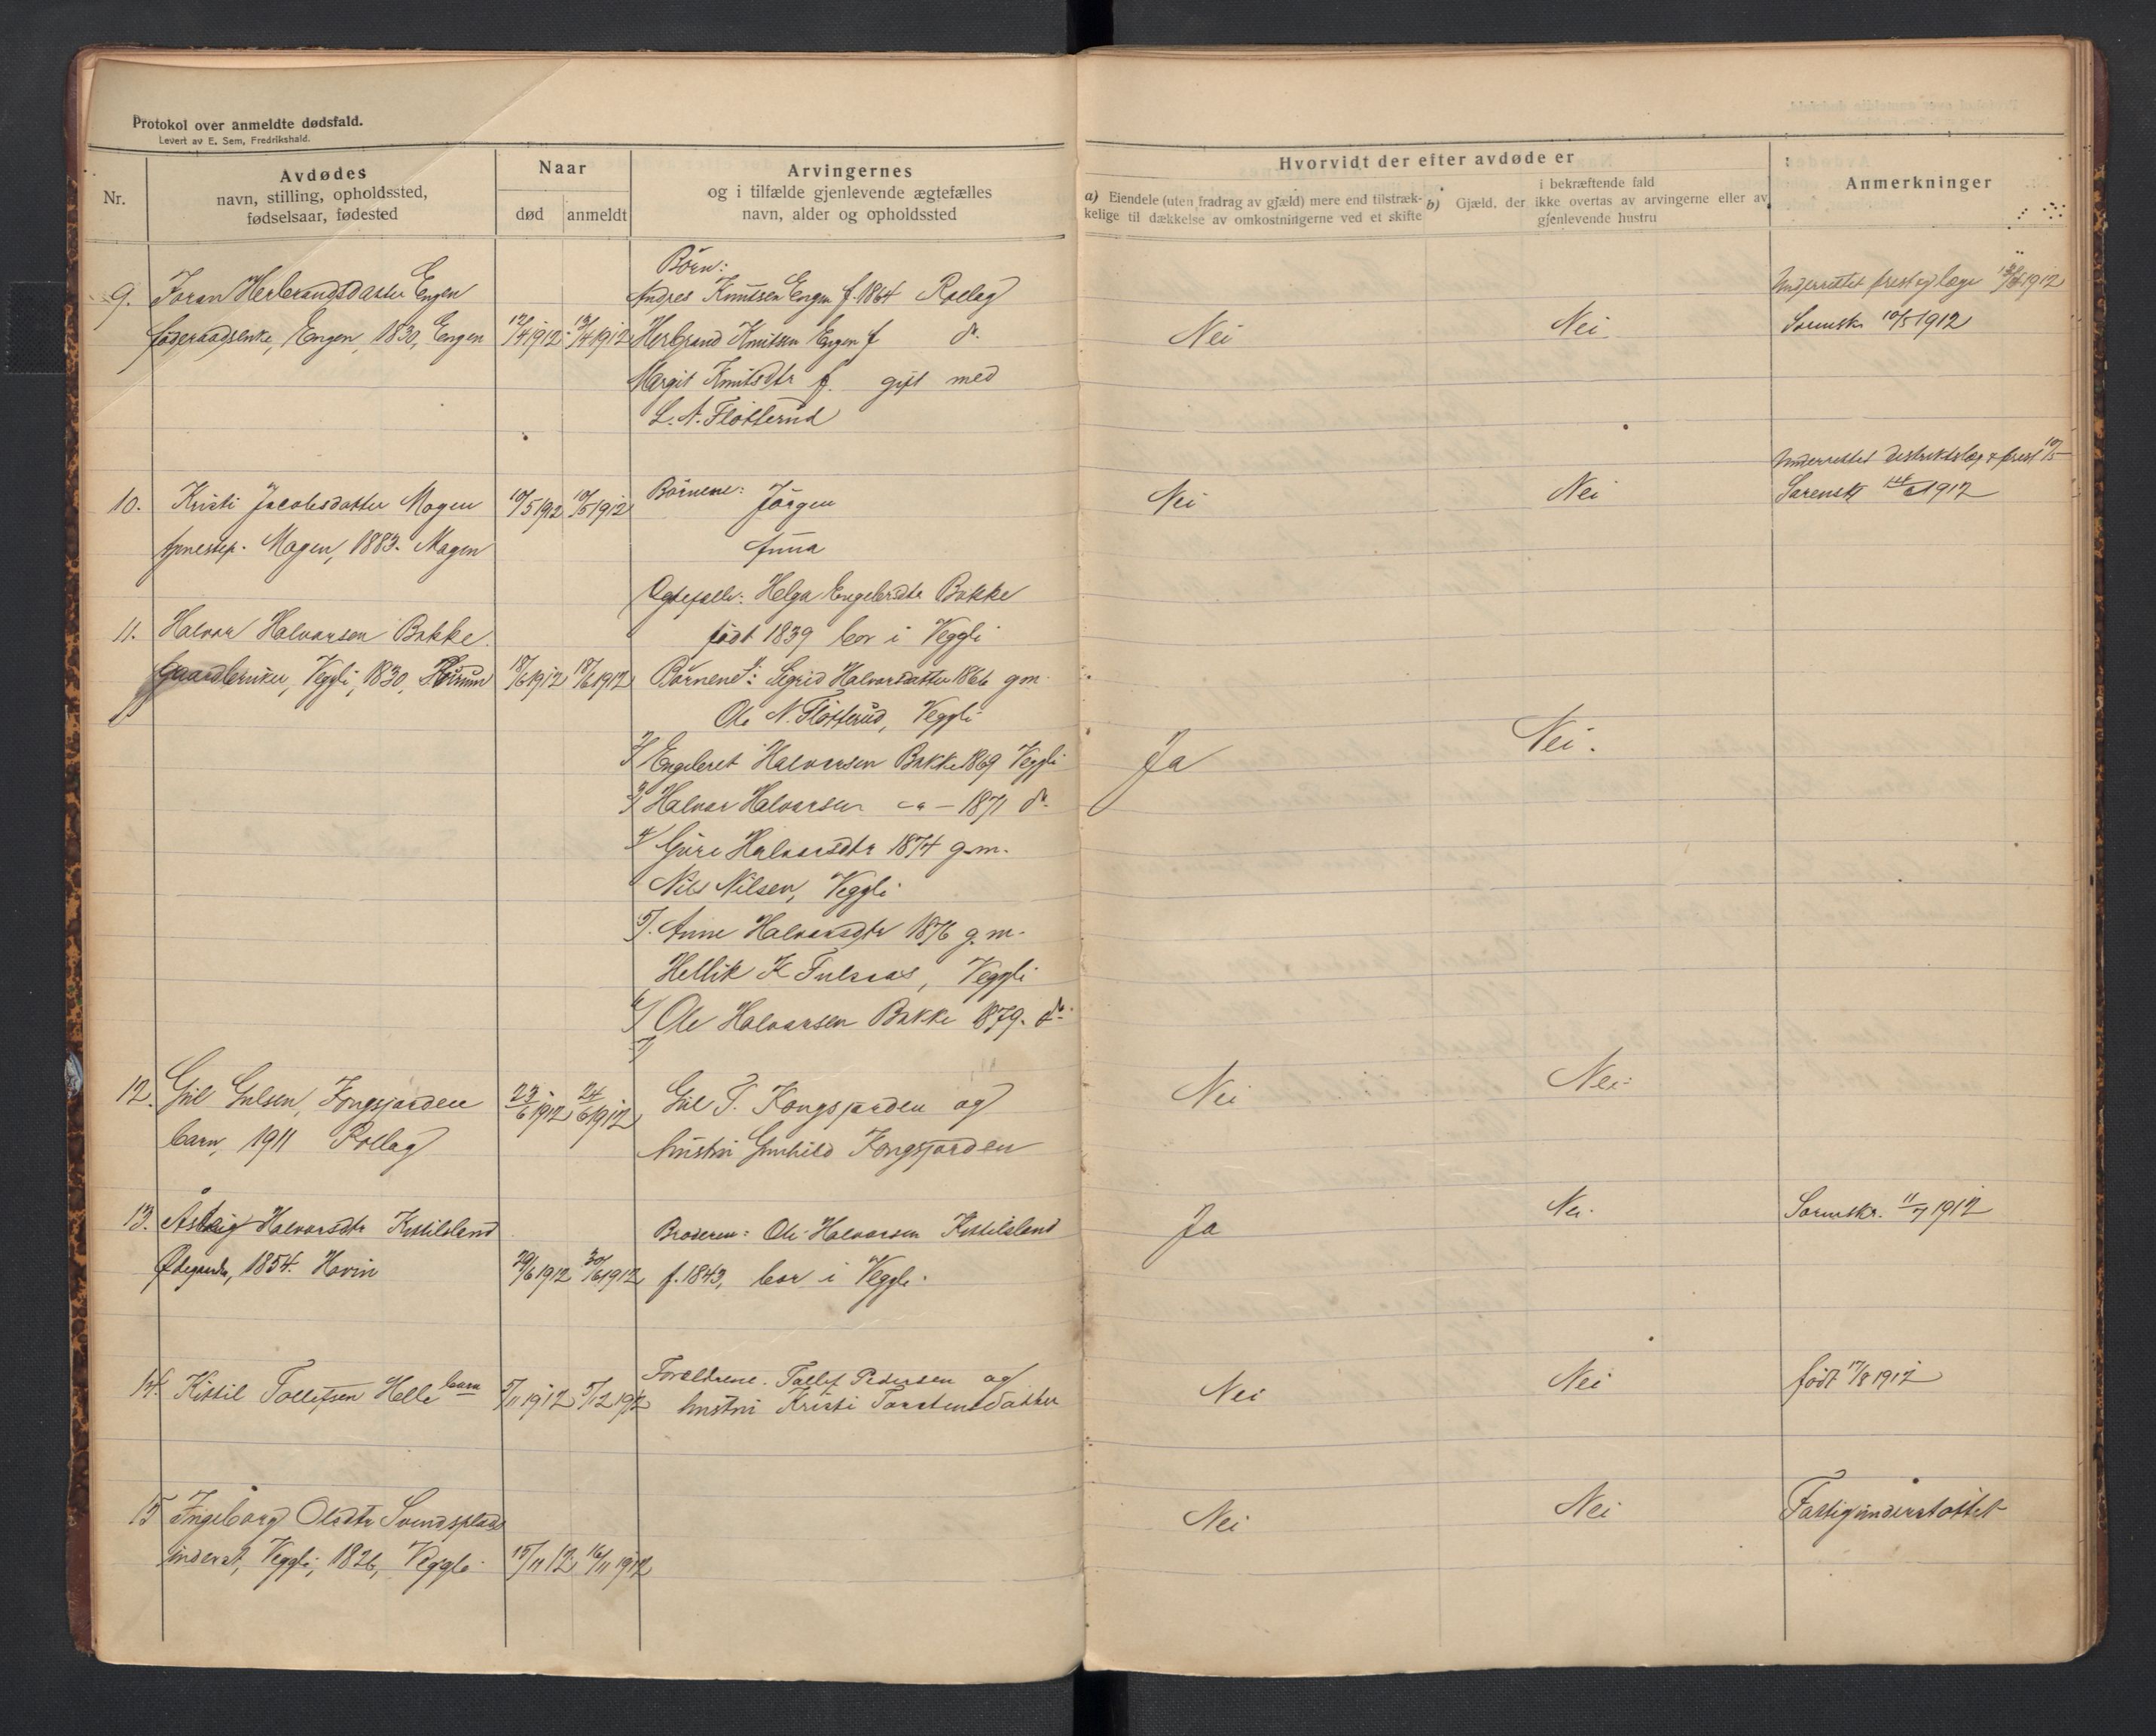 Protokol over anmeldte dødsfald.
Levert av E. Sem, Fredrikshald.
Nr.
Avdødes
navn, stilling, opholdssted,
fødselsaar, fødested
Naar
død
anmeldt
Arvingernes
og i tilfælde gjenlevende ægtefælles
navn, alder og opholdssted
Hvorvidt der efter avdøde er
a) Eiendele (uten fradrag av gjæld) mere end tilstræk-
kelige til dækkelse av omkostningerne ved et skifte
b) Gjæld, der
i bekræftende fald
ikke overtas av arvingerne eller av
gjenlevende hustru
Anmerkninger
9. Joran Herbrandsdatter Engen
føderaadsenke, Engen, 1830, Engen
12/4 1912 13/4 1912
Børn:
Andres Knutsen Engen f. 1864 Rollag
Herbrand Knutsen Engen f do
Margit Knutsdtr f. gift med
L. N. Fløtterud
Nei
Nei
Underrettet prest og læge 1912
10/5 1912
10. Kristi Jacobsdatter Mogen
Mogen, 1883. Mogen
10/5 1912 10/5 1912
Børnene: Jørgen
Anna
Nei
Nei
Underrettet distriktslæge & prest 10/5
1912
11. Halvor Halvorsen Bakke
Gaardbruker, Veggli, 1830,
18/6 1912 18/6 1912
Egtefælle: Helga Engebrdtr Bakke
født 1839 bor i Veggli
Børnene: Sigrid Halvorsdatter 1866 gm.
Ole N. Fløtterud, Veggli
2/ Engebret Halvorsen Bakke 1869 Veggli
3/ Halvor Halvorsen — 1871 do
4/ Guri Halvorsdtr 1874 g.m.
Nils Nilsen, Veggli
5/. Anne Halvorsdtr 1876 g.m.
Hellik K , Veggli
6/ Ole Halvorsen Bakke 1879. do
7/
Ja
Nei.
12. Gul Gulsen, Kongsjorden
barn, 1911 Rollag
23/6 1912 24/6 1912
Gul T. Kongsjorden og
hustru Gunhild Kongsjorden
Nei
Nei
13. Halvorsdtr Kittilsland
1854. Hovin
29/6 1912 30/6 1912
Broderen: Ole Halvorsen Kittilsland
f. 1843, bor i Veggli.
Ja
Nei.
11/7 1912
14. Kittil Tollefsen Helle barn
5/11 1912 5/12 1912
Forældrene. Tollef Pedersen og
hustru Kristi Torstensdatter
Nei
Nei
født 17/8 1912
15 Ingeborg Olsdtr Svendsplads
inderst, Veggli, 1826, Veggli
15/11 12 16/11 1912
Nei
Nei
Fattigunderstøttet